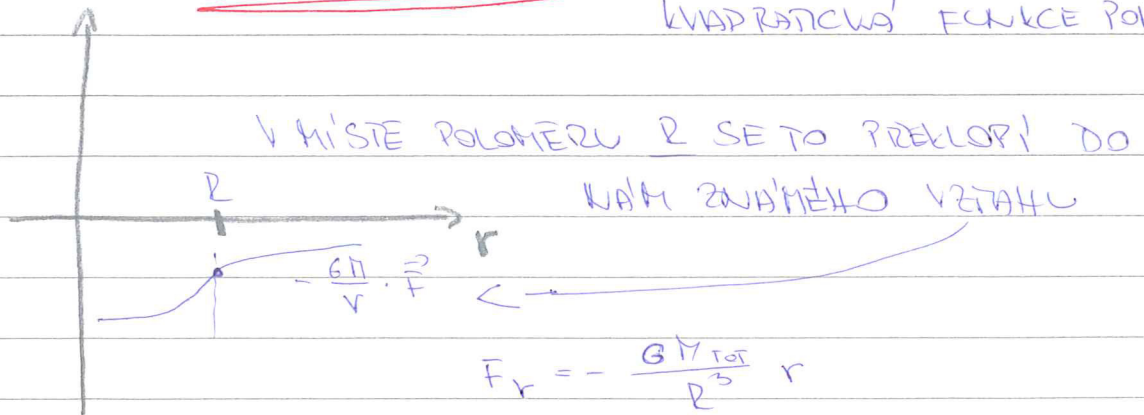 KVADRATICKÁ FUNKCE
V MÍSTĚ POLOMĚRU R SE TO PŘEKLOPÍ DO
NÁM ZNÁMÉHO VZTAHU
R
r
- GM/r · r⃗
F_r = - GM_TOT/R³ r